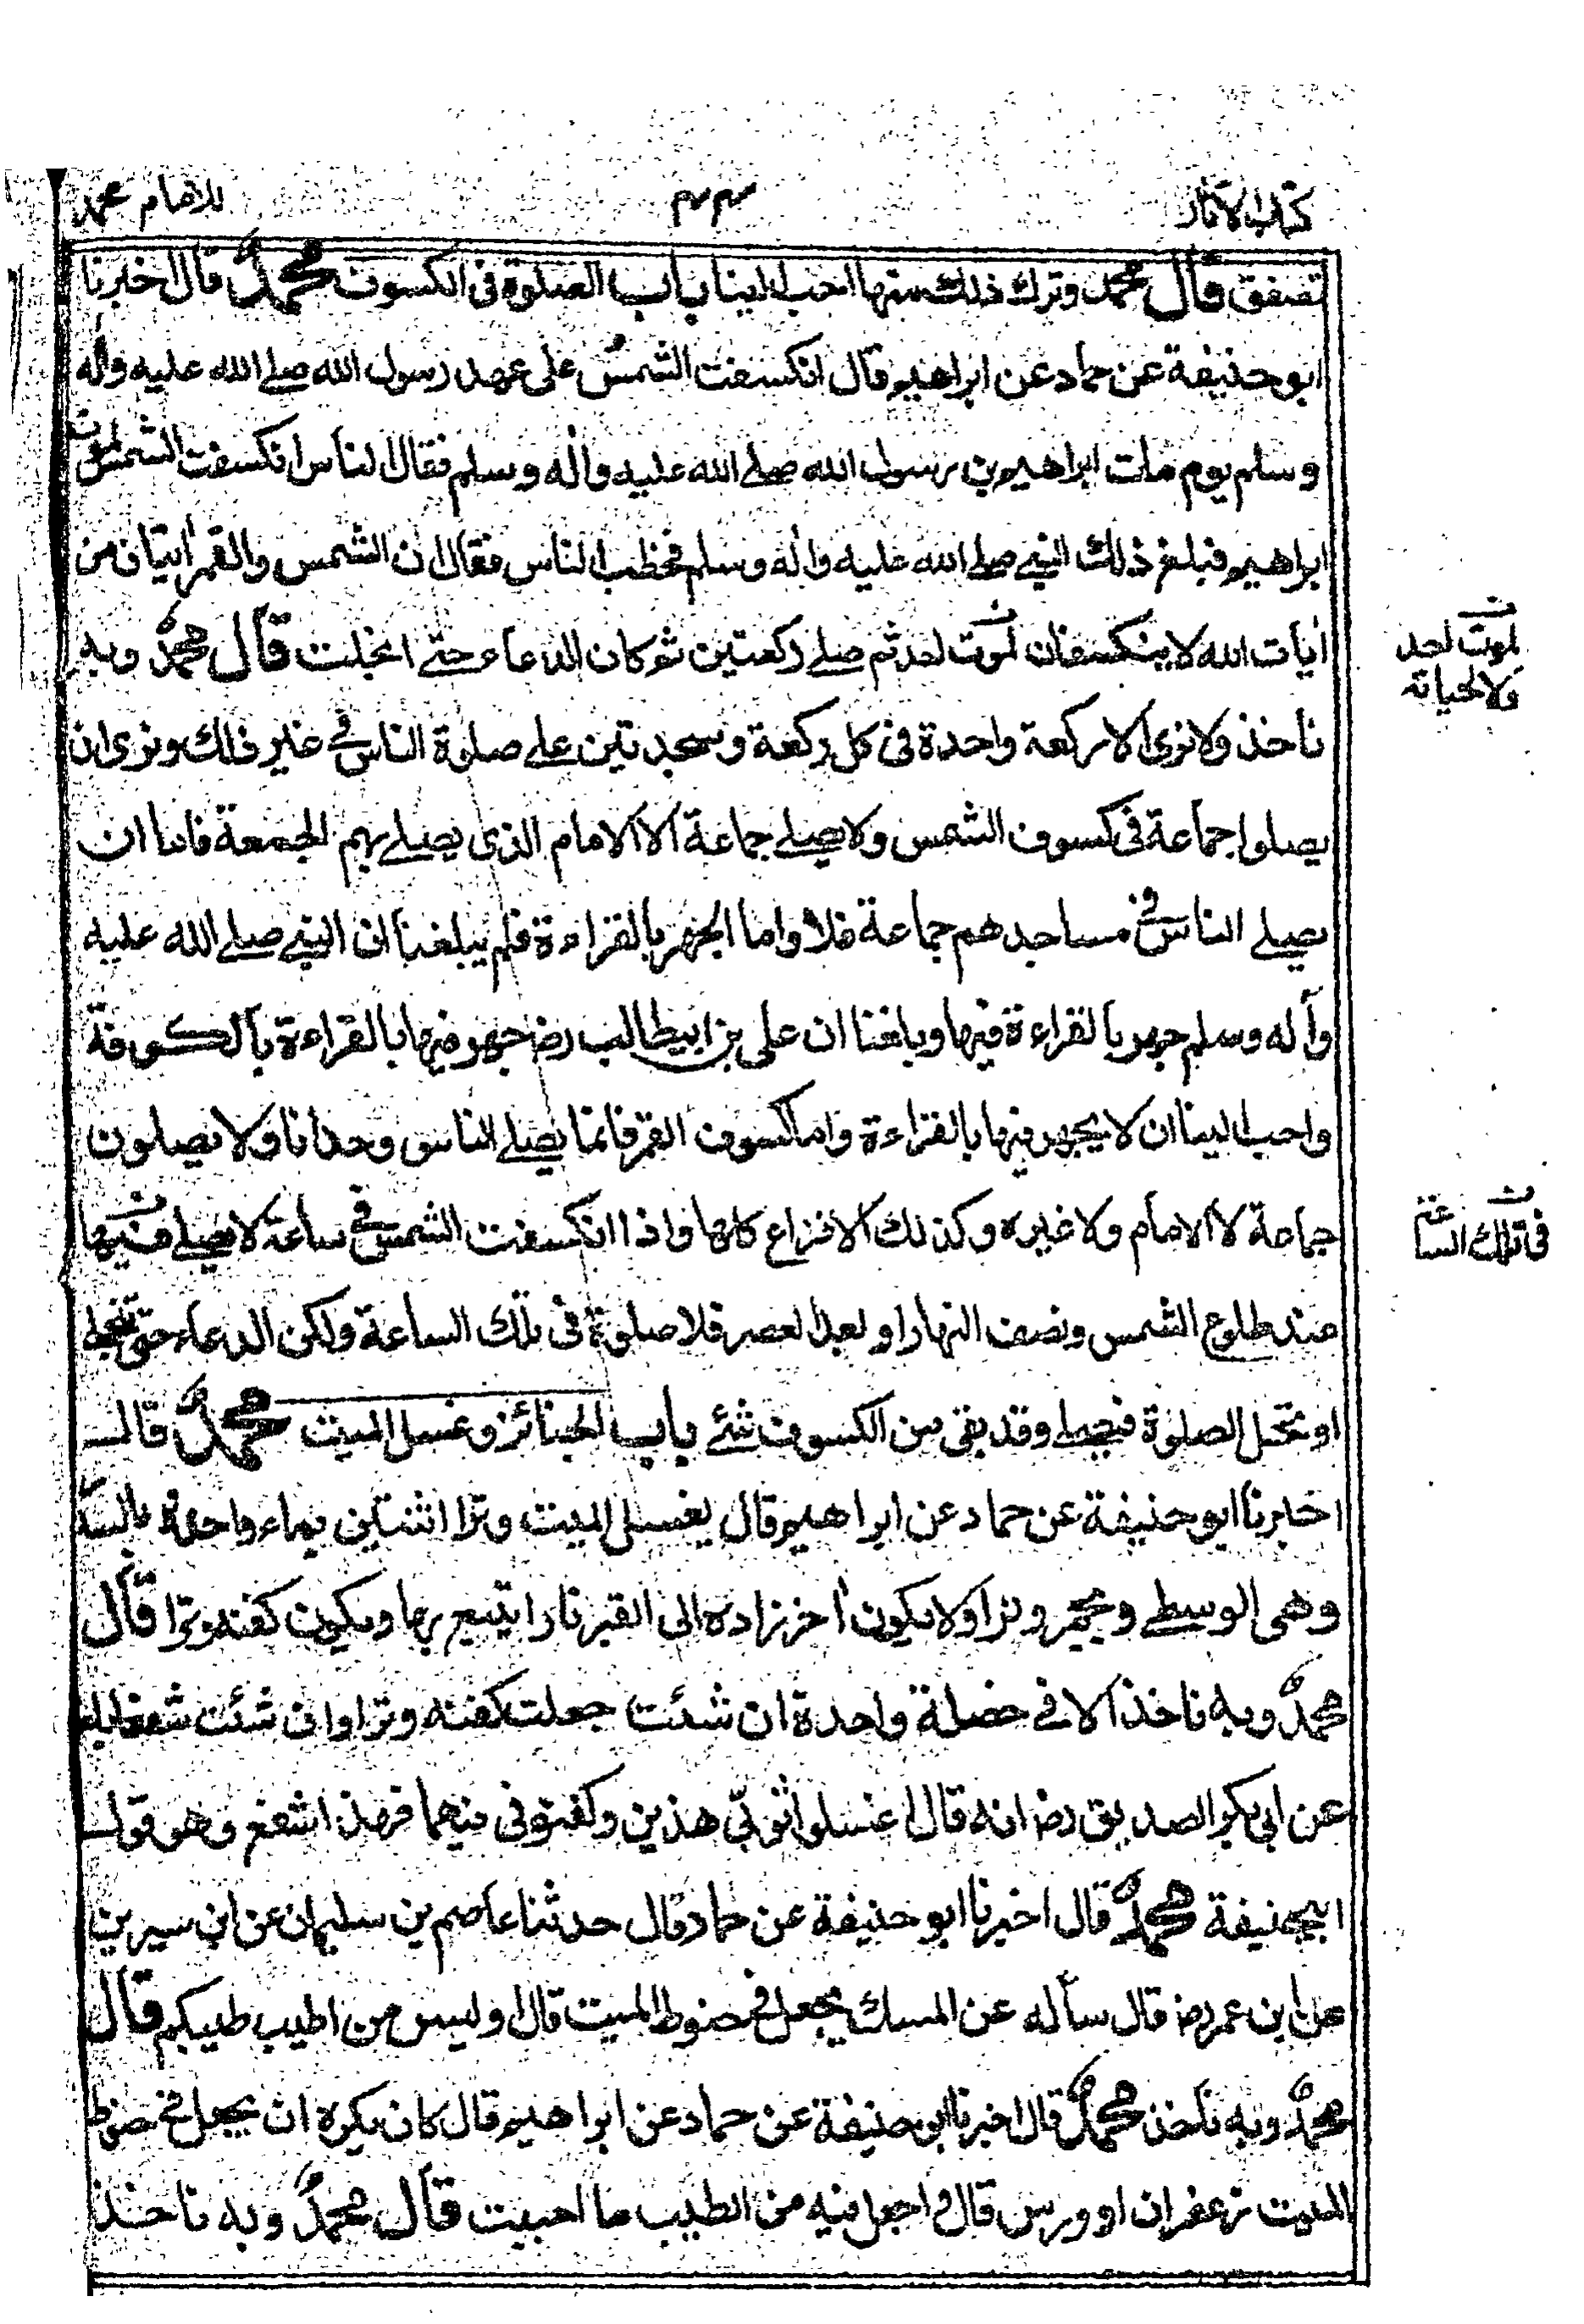 كتاب الآثار
٣٣
للامام محمد
تصفق قال محمد وترك ذلك منها احب الينا باب الصلوة فى الكسوف محمدٌ قال اخبرنا
ابو حنيفة عن حماد عن ابراهيم قال انكسفت الشمس على عهد رسول الله صلے الله عليه وأله
وسلم يوم مات ابراهيم بن رسول الله صلے الله عليه وأله وسلم فقال الناس انكسفت الشمس لموت
ابراهيم فبلغ ذلك النبي صلے الله عليه وأله وسلم فخطب الناس فقال ان الشمس والقمر ايتان من
ايات الله لا ينكسفان لموت احد ثم صلے ركعتين ثم كان الدعاء حتے انجلت قال محمدٌ وبه
ناخذ ولا نرى الا ركعة واحدة فى كل ركعة وسجدتين علے صلوة الناس فے غير ذلك ونرى ان
يصلوا جماعة فى كسوف الشمس ولا يصلے جماعة الا الامام الذى يصلے بهم الجمعة فاما ان
يصلے الناس فے مساجدهم جماعة فلا واما الجهر بالقراءة فلم يبلغنا ان النبي صلے الله عليه
وأله وسلم جهر بالقراءة فيها وبلغنا ان على بن ابيطالب رضـ جهر فيها بالقراءة بالكوفة
واحب الينا ان لا يجهر فيها بالقراءة واما كسوف القمر فانما يصلے الناس وحدانا ولا يصلون
جماعة لا الامام ولا غيره وكذلك الافزاع كلها واذا انكسفت الشمس فے ساعة لا يصلے فيها
عند طلوع الشمس ونصف النهار او بعد العصر فلا صلوة فى تلك الساعة ولكن الدعاء حتى تنجلے
او تحل الصلوة فيصلے وقد بقى من الكسوف شئے باب الجنائز وغسل الميت محمدٌ قال
اخبرنا ابو حنيفة عن حماد عن ابراهيم قال يغسل الميت وترا اثنتين بماء وواحدة بالسدر
وهى الوسطے ويجمر وترا ولا يكون أخر زاده الى القبر نارا يتبع بها ويكون كفنه وترا قال
محمدٌ وبه ناخذ الا فے خصلة واحدة ان شئت جعلت كفنه وترا وان شئت شفعا بلغنا
عن ابى بكر الصديق رضـ انه قال اغسلوا ثوبيّ هذين وكفنونى فيهما فهذا شفع وهو قول
ابيحنيفة محمدٌ قال اخبرنا ابو حنيفة عن حماد قال حدثنا عاصم بن سليمان عن ابن سيرين
عن ابن عمر رضـ قال سأله عن المسك يجعل فے حنوط الميت قال او ليس من اطيب طيبكم قال
محمدٌ وبه ناخذ محمدٌ قال اخبرنا ابو حنيفة عن حماد عن ابراهيم قال كان يكره ان يجعل فے حنوط
الميت زعفران او ورس قال واجعل فيه من الطيب ما احببت قال محمدٌ وبه ناخذ
لموت احد
ولا لحياته
فى تلك الساعة